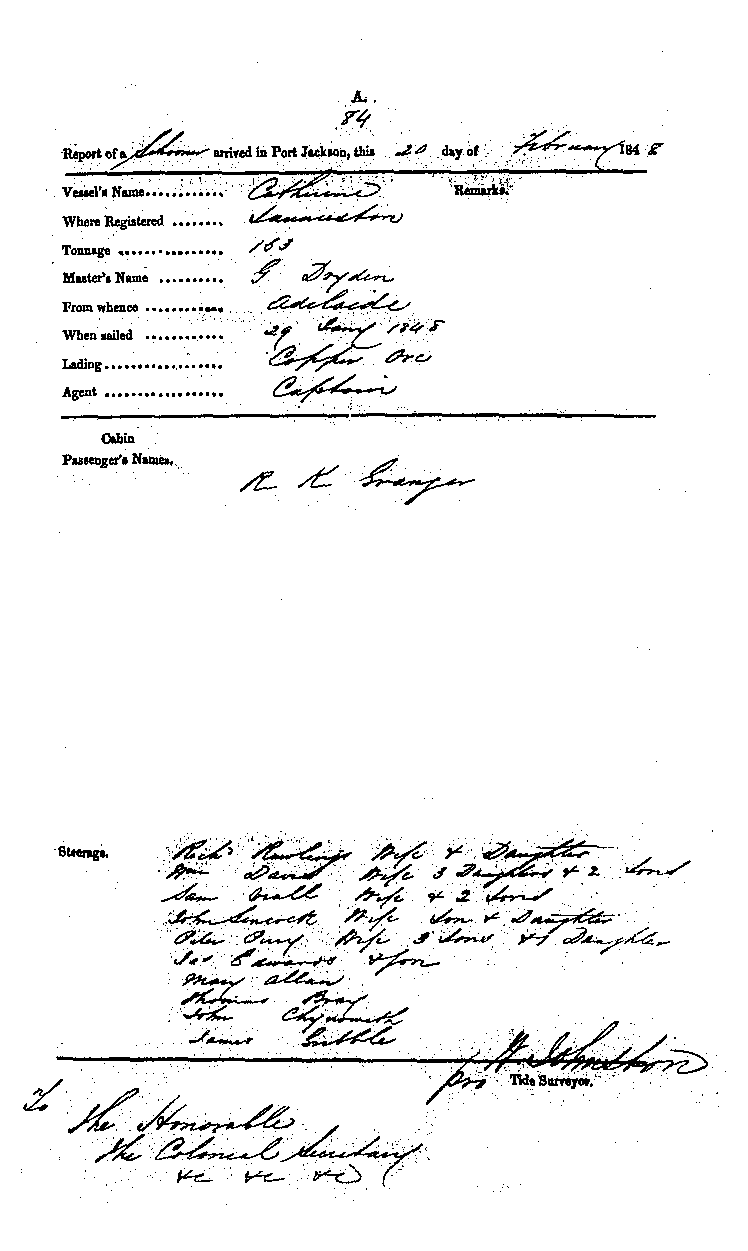 A.
84
Report of a Schooner arrived in Port Jackson, this 20 day of February 1848
Vessel's Name............ Catherine Remarks.
Where Registered ........ Launceston
Tonnage ................ 153
Master's Name ......... G Dryden
From whence ............ Adelaide
When sailed ............ 29 Jany 1848
Lading.................. Copper Ore
Agent .................. Captain
Cabin
Passenger's Names.
R K Granger
Steerage. Richd Rawlings Wife & Daughter
Wm David Wife 3 Daughters & 2 Sons
Sam Wall Wife & 2 Sons
John Sincock Wife Son & Daughter
Peter Pury Wife 3 Sons & 1 Daughter
Jas Edwards & Son
Mary Allan
Thomas Bray
John Chynoweth
James Gribble
pro W Johnston
Tide Surveyor.
To
The Honorable
The Colonial Secretary
&c &c &c